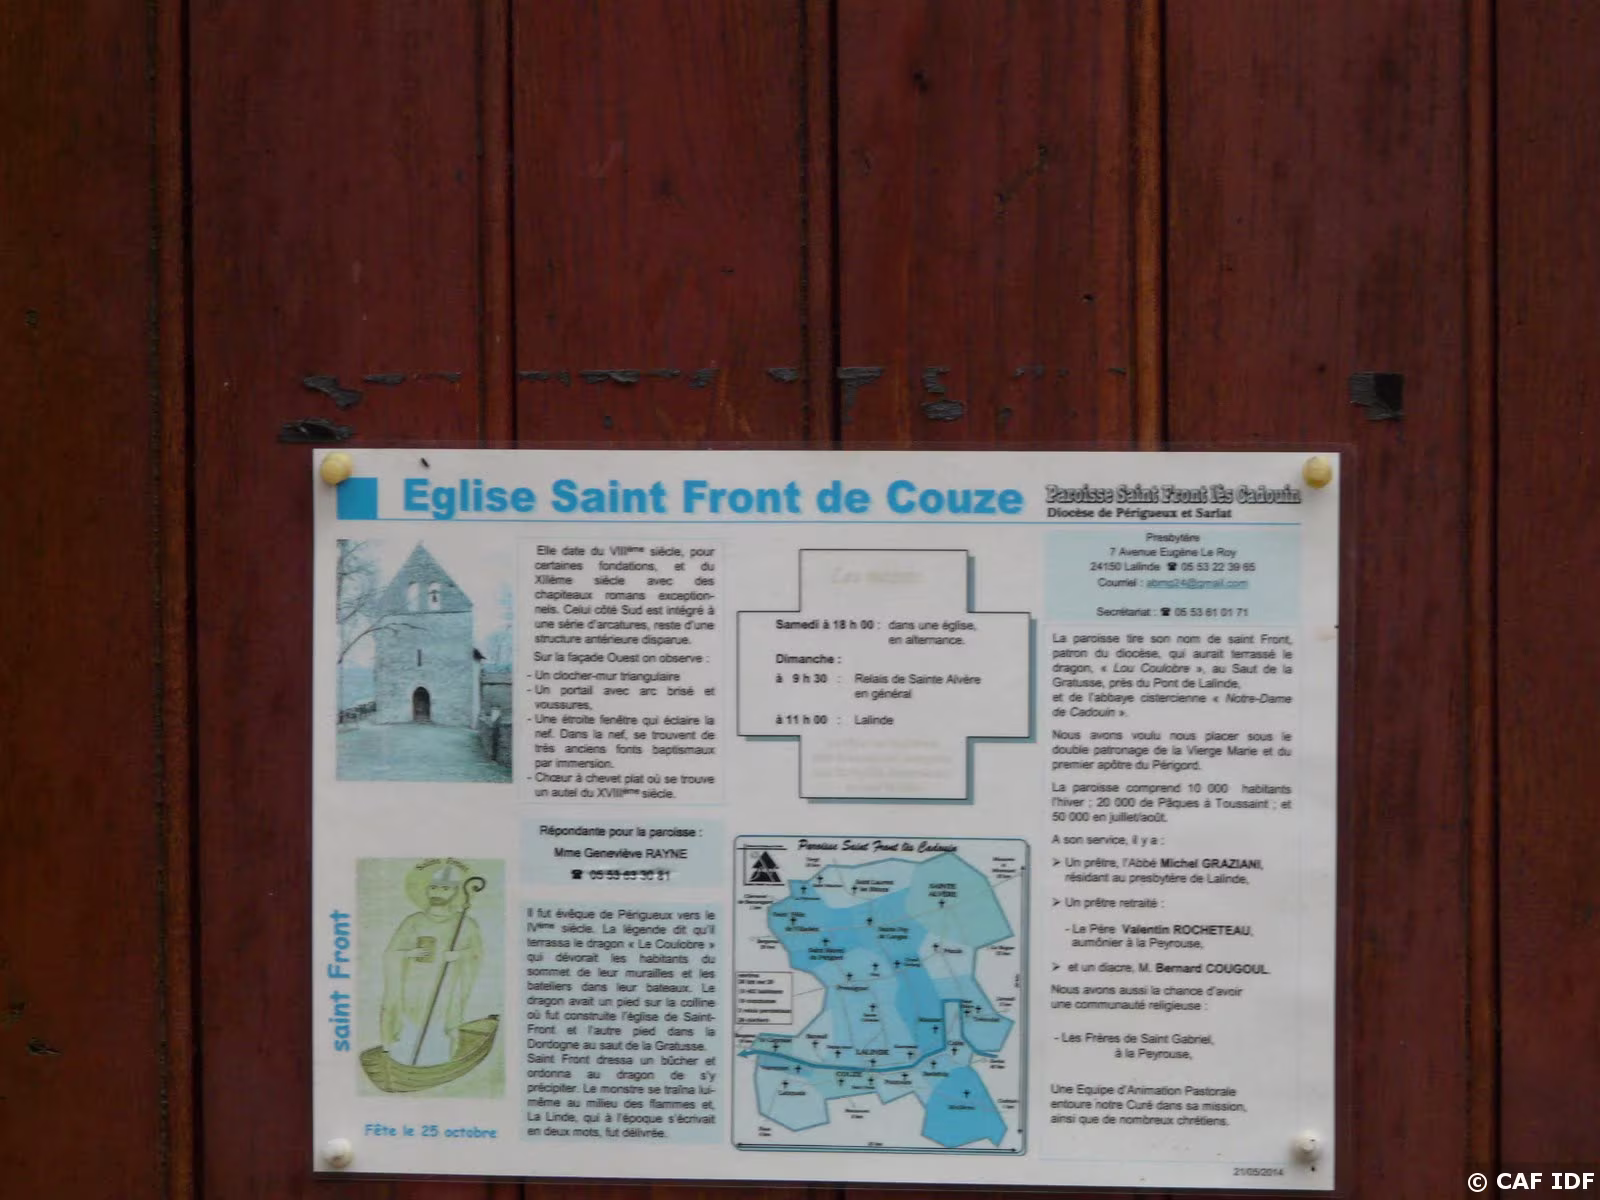 Eglise Saint Front de Couze
Paroisse Saint Front lès Cadouin
Diocèse de Périgueux et Sarlat
Elle date du VIIIème siècle, pour
certaines fondations, et du
XIIème siècle avec des
chapiteaux romans exception-
nels. Celui côté Sud est intégré à
une série d'arcatures, reste d'une
structure antérieure disparue.
Sur la façade Ouest on observe :
- Un clocher-mur triangulaire
- Un portail avec arc brisé et
voussures,
- Une étroite fenêtre qui éclaire la
nef. Dans la nef, se trouvent de
très anciens fonts baptismaux
par immersion.
- Chœur à chevet plat où se trouve
un autel du XVIIIème siècle.
Répondante pour la paroisse :
Mme Geneviève RAYNE
☎ 05 53 63 30 21
saint Front
Fête le 25 octobre
Il fut évêque de Périgueux vers le
IVème siècle. La légende dit qu'il
terrassa le dragon « Le Coulobre »
qui dévorait les habitants du
sommet de leur murailles et les
bateliers dans leur bateaux. Le
dragon avait un pied sur la colline
où fut construite l'église de Saint-
Front et l'autre pied dans la
Dordogne au saut de la Gratusse.
Saint Front dressa un bûcher et
ordonna au dragon de s'y
précipiter. Le monstre se traîna lui-
même au milieu des flammes et,
La Linde, qui à l'époque s'écrivait
en deux mots, fut délivrée.
Les messes
Samedi à 18 h 00 : dans une église,
en alternance.
Dimanche :
à 9 h 30 : Relais de Sainte Alvère
en général
à 11 h 00 : Lalinde
Paroisse Saint Front lès Cadouin
SAINTE
ALVÈRE
LALINDE
COUZE
Presbytère
7 Avenue Eugène Le Roy
24150 Lalinde ☎ 05 53 22 39 65
Courriel : abmg24@gmail.com
Secrétariat : ☎ 05 53 61 01 71
La paroisse tire son nom de saint Front,
patron du diocèse, qui aurait terrassé le
dragon, « Lou Coulobre », au Saut de la
Gratusse, près du Pont de Lalinde,
et de l'abbaye cistercienne « Notre-Dame
de Cadouin ».
Nous avons voulu nous placer sous le
double patronage de la Vierge Marie et du
premier apôtre du Périgord.
La paroisse comprend 10 000 habitants
l'hiver ; 20 000 de Pâques à Toussaint ; et
50 000 en juillet/août.
A son service, il y a :
➢ Un prêtre, l'Abbé Michel GRAZIANI,
résidant au presbytère de Lalinde,
➢ Un prêtre retraité :
- Le Père Valentin ROCHETEAU,
aumônier à la Peyrouse,
➢ et un diacre, M. Bernard COUGOUL.
Nous avons aussi la chance d'avoir
une communauté religieuse :
- Les Frères de Saint Gabriel,
à la Peyrouse,
Une Equipe d'Animation Pastorale
entoure notre Curé dans sa mission,
ainsi que de nombreux chrétiens.
21/05/2014
© CAF IDF